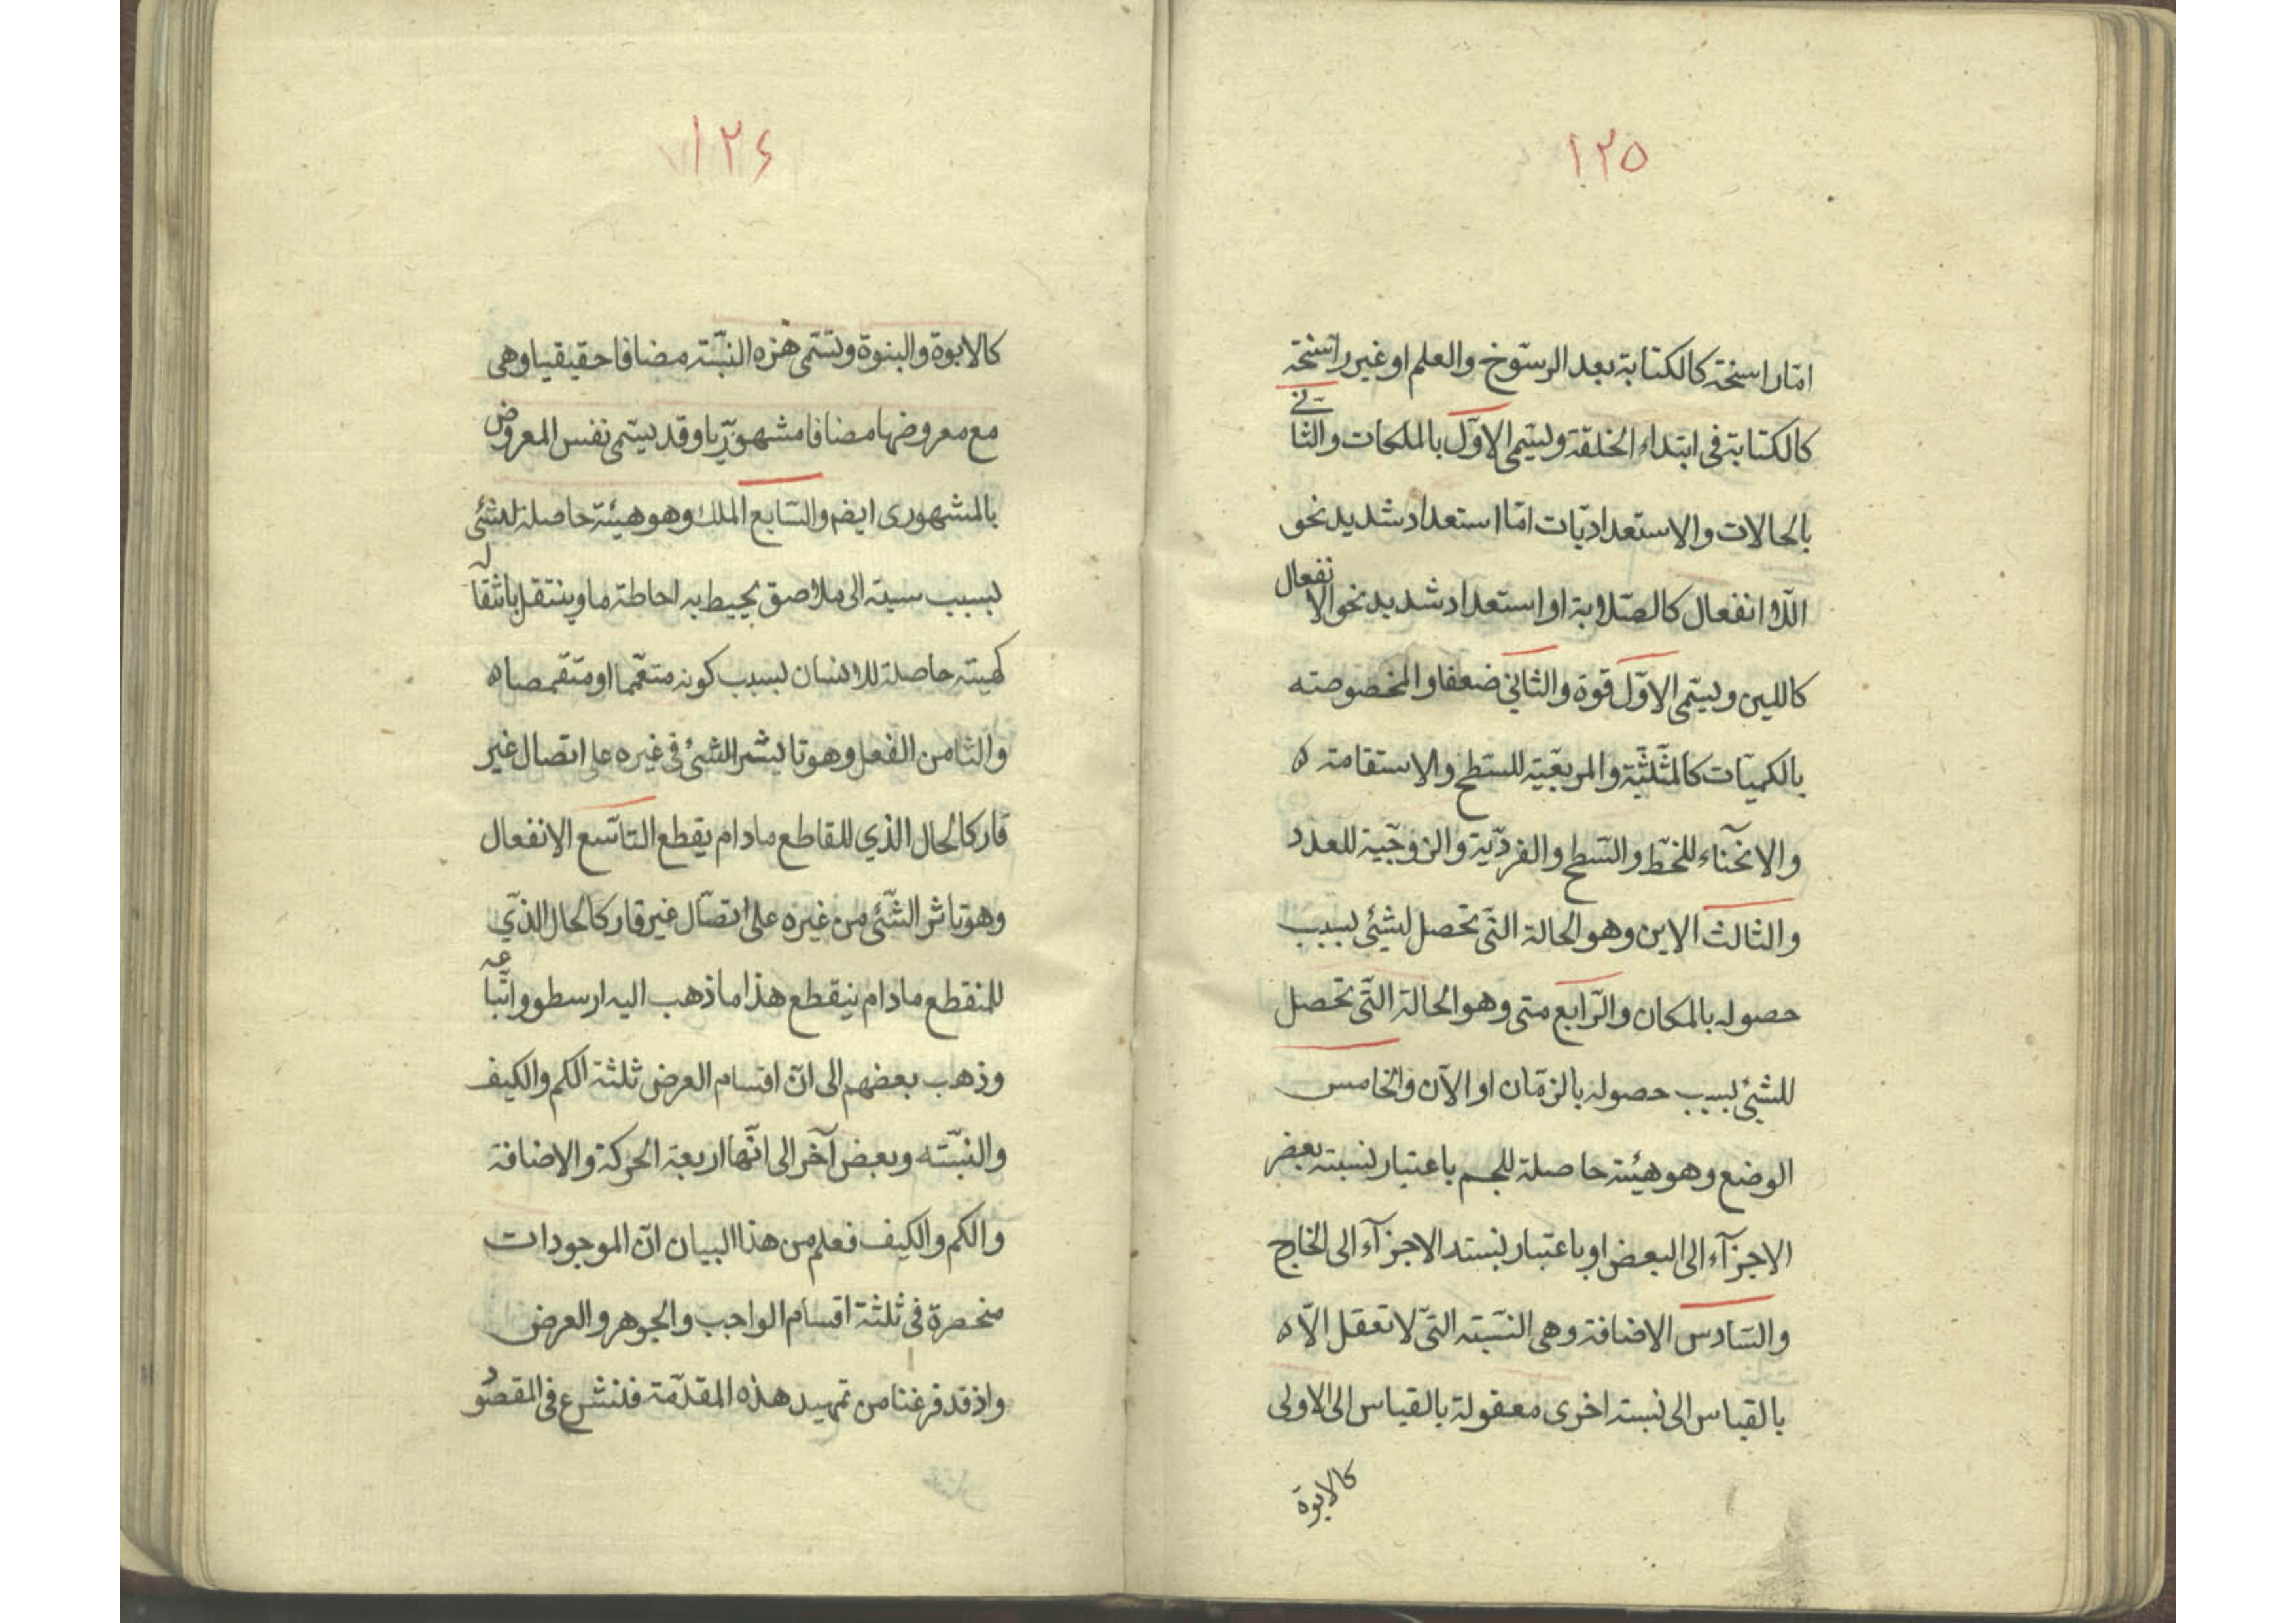 ١٢٥
امّا راسخة كالكتابة بعد الرسّوخ والعلم او غير راسّخة
كالكتابة فى ابتداء الخلقة وليسّمى الاوّل بالملكات والثّانى
بالحالات والاستعداديّات امّا استعداد شديد نحو
اللّا انفعال كالصّلابة او استعداد شديد نحو الانفعال
كاللين ويسّمى الاوّل قوة والثاني ضعفا والمخصوصته
بالكميّات كالمثّلثيّة والمربعّيته للسّطح والاستقامته ه
والانحّناء للخطّ والسّطح والفرديّة والزوجّية للعدد
والثالث الاين وهو الحالة التّى تحصل لشيئ بسبب
حصوله بالمكان والرّابع متى وهو الحالة التّى تحصل
للشيئ بسبب حصوله بالزمّان او الآن والخامس
الوضع وهو هيئة حاصلة للجسم باعتبار نسبته بعض
الاجزآء الى البعض او باعتبار نسبته الاجزآء الى الخارج
والسّادس الاضافة وهى النسّبته التّى لا تعقل الّا ه
بالقياس الى نسبته اخرى معقولة بالقياس الى الاولى
كالابوة
١٢٦
كالابوة والبنوة وتسّمى هزه النسّبته مضافا حقيقيا وهى
مع معروضها مضافا مشهورّيا وقد يسّمى نفس المعروض
بالمشهورى ايضم والسّابع الملك وهو هيئة حاصلة للشئى
بسبب سبته الى ملاصق يحيط به احاطة ما وينتقل بانتقاله
كهيته حاصلة للانسان بسبب كونه متعمّما او متقمّصا ه
والثامن الفعل وهو تاثير الشئ فى غيره على اتصال غير
قار كالحال الذي للقاطع مادام يقطع التاسّع الانفعال
وهو تاثر الشّئى من غيره على اتصّال غير قار كالحال الذّي
للمنقطع مادام ينقطع هذا ما ذهب اليه ارسطو واتّباعه
وذهب بعضهم الى انّ اقسام العرض ثلثة الكم والكيف
والنسّبته وبعض آخر الى انّها اربعة الحركة والاضافة
والكم والكيف فعلم من هذا البيان انّ الموجودات
منحصرة فى ثلثة اقسام الواجب والجوهر والعرض
واذ قد فرغنا من تمهيد هذه المقدّمة فلنشرع فى المقصود